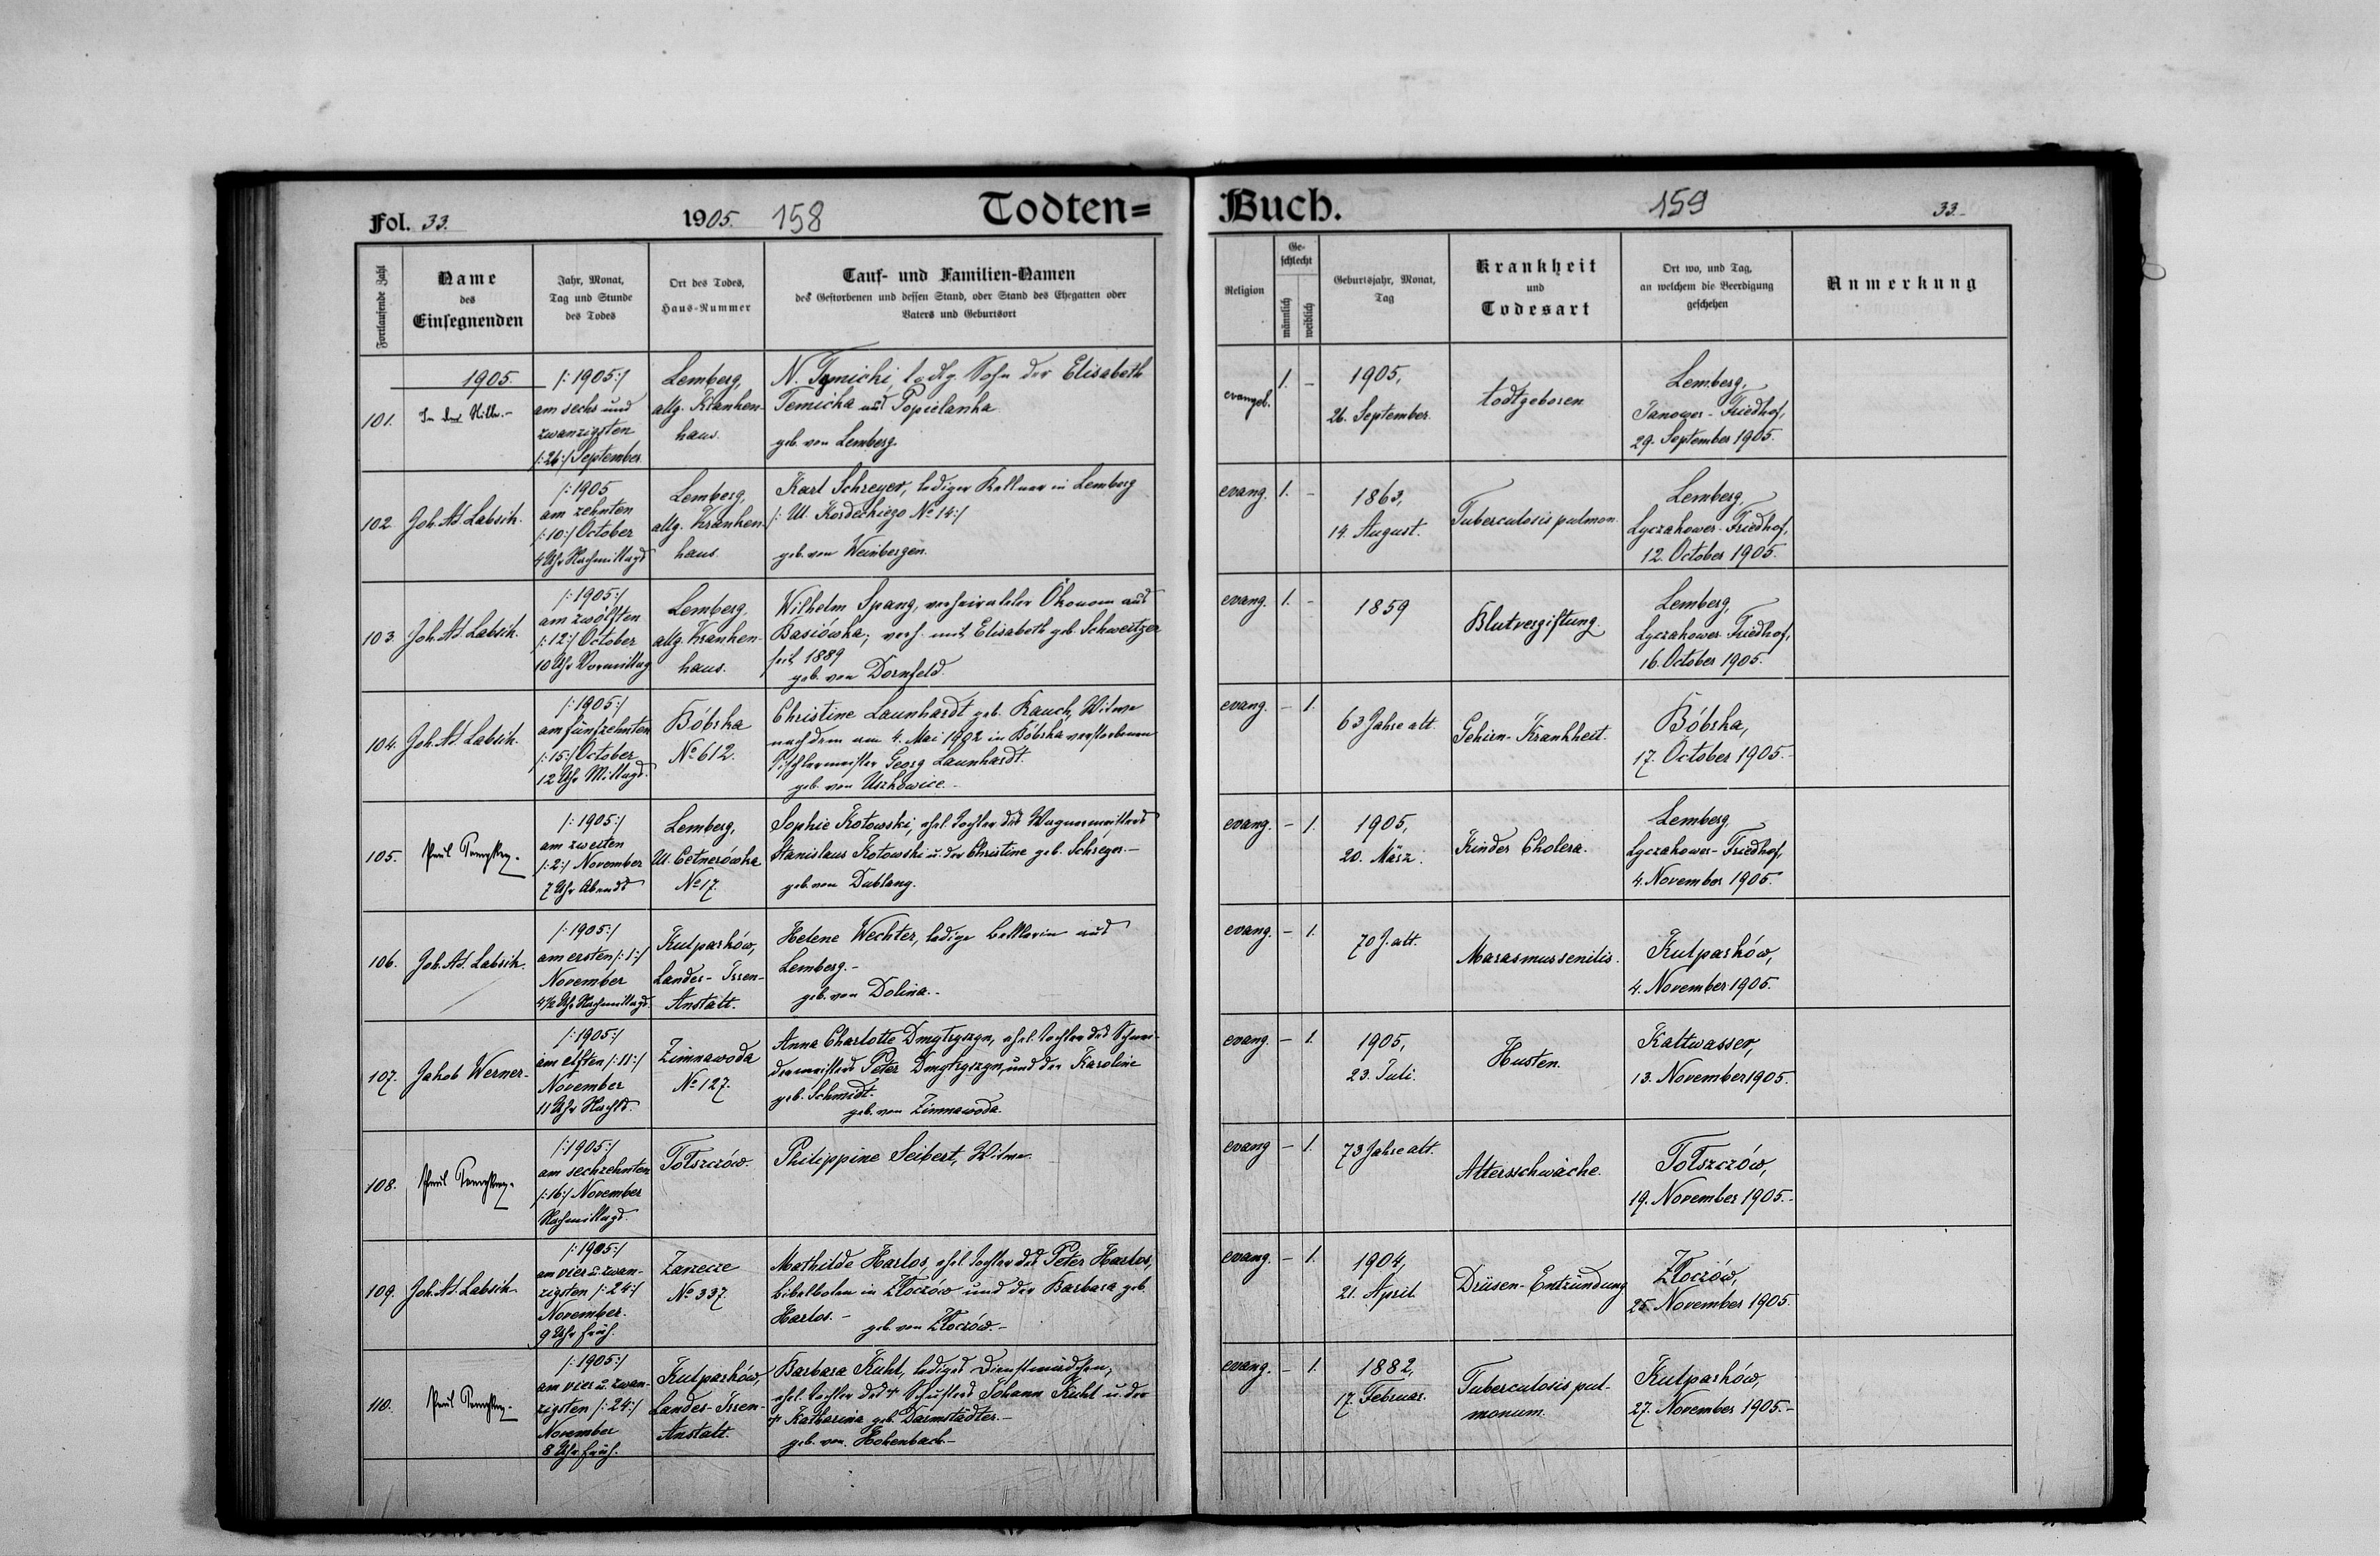 Fol. 33. 1905. 158 Todten=
Buch. 159 33.
Fortlaufende Zahl
Name
des
Einsegnenden
Jahr, Monat,
Tag und Stunde
des Todes
Ort des Todes,
Haus-Nummer
Tauf- und Familien-Namen
des Gestorbenen und dessen Stand, oder Stand des Ehegatten oder
Vaters und Geburtsort
Religion
Ge-
schlecht
männlich
weiblich
Geburtsjahr, Monat,
Tag
Krankheit
und
Todesart
Ort wo, und Tag,
an welchem die Beerdigung
geschehen
Anmerkung
1905.
101.
In der Stille.-
/:1905:/
am sechs und
zwanzigsten
/:26:/ September
Lemberg,
allg. Kranken-
haus.
N. Sohn der Elisabeth
Temicka Popielanka
geb. von Lemberg.
evangel.
1. -
1905,
26. September.
todtgeboren
Lemberg,
Janower-Friedhof,
29. September 1905.
102.
Joh. Ad. Labsik.
/:1905
am zehnten
/:10:/ October
4 Uhr Nachmittags
Lemberg,
allg. Kranken-
haus.
Karl Schreyer, lediger Kellner in Lemberg
/: Ul. Kordeckiego No 14:/
geb. von Weinbergen.
evang. 1. -
1863,
14. August.
Tuberculosis pulmon.
Lemberg,
Lyczakower-Friedhof,
12. October 1905.
103.
Joh. Ad. Labsik.
/:1905:/
am zwölften
/:12:/ October
10 Uhr Vormittag
Lemberg,
allg. Kranken-
haus.
Wilhelm Spang, verheirateter Ökonom aus
Basiówka, verh. mit Elisabeth geb. Schweitzer
seit 1889
geb. von Dornfeld.
evang. 1. -
1859
Blutvergiftung.
Lemberg,
Lyczakower Friedhof,
16. October 1905.
104.
Joh. Ad. Labsik.
/:1905:/
am fünfzehnten
/:15:/ October
12 Uhr Mittags.
Bóbrka
No 612.
Christine Launhardt geb. Rauch, Witwe
nach dem am 4. Mai in Bóbrka verstorbenen
Tischlermeister Georg Launhardt.
geb. von Uszkowice.-
evang. - 1.
63 Jahre alt.
Gehirn-Krankheit.
Bóbrka,
17. October 1905.-
105.
Paul
/:1905:/
am zweiten
/:2:/ November
7 Uhr Abends
Lemberg,
Ul. Cetnerówka
No 17.
Sophie Kotowski, ehel. Tochter des Wagnermeisters
Stanislaus Kotowski u. der Christine geb. Schreyer.-
geb. von Dublany.
evang. - 1.
1905,
20. März.
Kinder Cholera.
Lemberg,
Lyczakower-Friedhof,
4. November 1905.
106.
Joh. Ad. Labsik.
/:1905:/
am ersten /:1:/
November
4½ Uhr Nachmittags.
Kulparków,
Landes-Irren-
Anstalt.
Helene Wechter, ledige Bettlerin aus
Lemberg.-
geb. von Dolina.-
evang. - 1.
70 J. alt.
Marasmus senilis.
Kulparków,
4. November 1905.
107.
Jakob Werner.
/:1905:/
am elften /:11:/
November
11 Uhr Nachts.
Zimnawoda
No 127.
Anna Charlotte Dmytryszyn, ehel. Tochter des Schnei-
dermeisters Peter Dmytryszyn, und der Karoline
geb. Schmidt.
geb. von Zimnawoda.
evang. - 1.
1905,
23. Juli.
Husten.
Kaltwasser,
13. November 1905.
108.
Paul
/:1905:/
am sechzehnten
/:16:/ November
Nachmittags.
Tołszczów.
Philippine Seibert, Witwe.
evang - 1.
73 Jahre alt.
Altersschwäche.
Tołszczów,
19. November 1905.-
109.
Joh. Ad. Labsik
/:1905:/
am vier u. zwan-
zigsten /:24:/
November.
9 Uhr früh.
Zarzecze
No 337.
Mathilde Harlos, ehel. Tochter des Peter Harlos,
Bibelboten in Złoczów und der Barbara geb.
Harlos.-
geb. von Złoczów.-
evang. - 1.
1904,
21. April.
Drüsen-Entzündung
Złoczów,
25. November 1905.
110.
Paul
/:1905:/
am vier u. zwan-
zigsten /:24:/
November
8 Uhr früh.
Kulparków,
Landes-Irren-
Anstalt.
Barbara Kuhl, lediges Dienstmädchen,
ehel. Tochter des † Schusters Johann Kuhl u. der
† Katharina geb. Darmstädter.-
geb. von Hohenbach.-
evang. - 1.
1882,
17. Februar.
Tuberculosis pul-
monum.
Kulparków,
27. November 1905.-